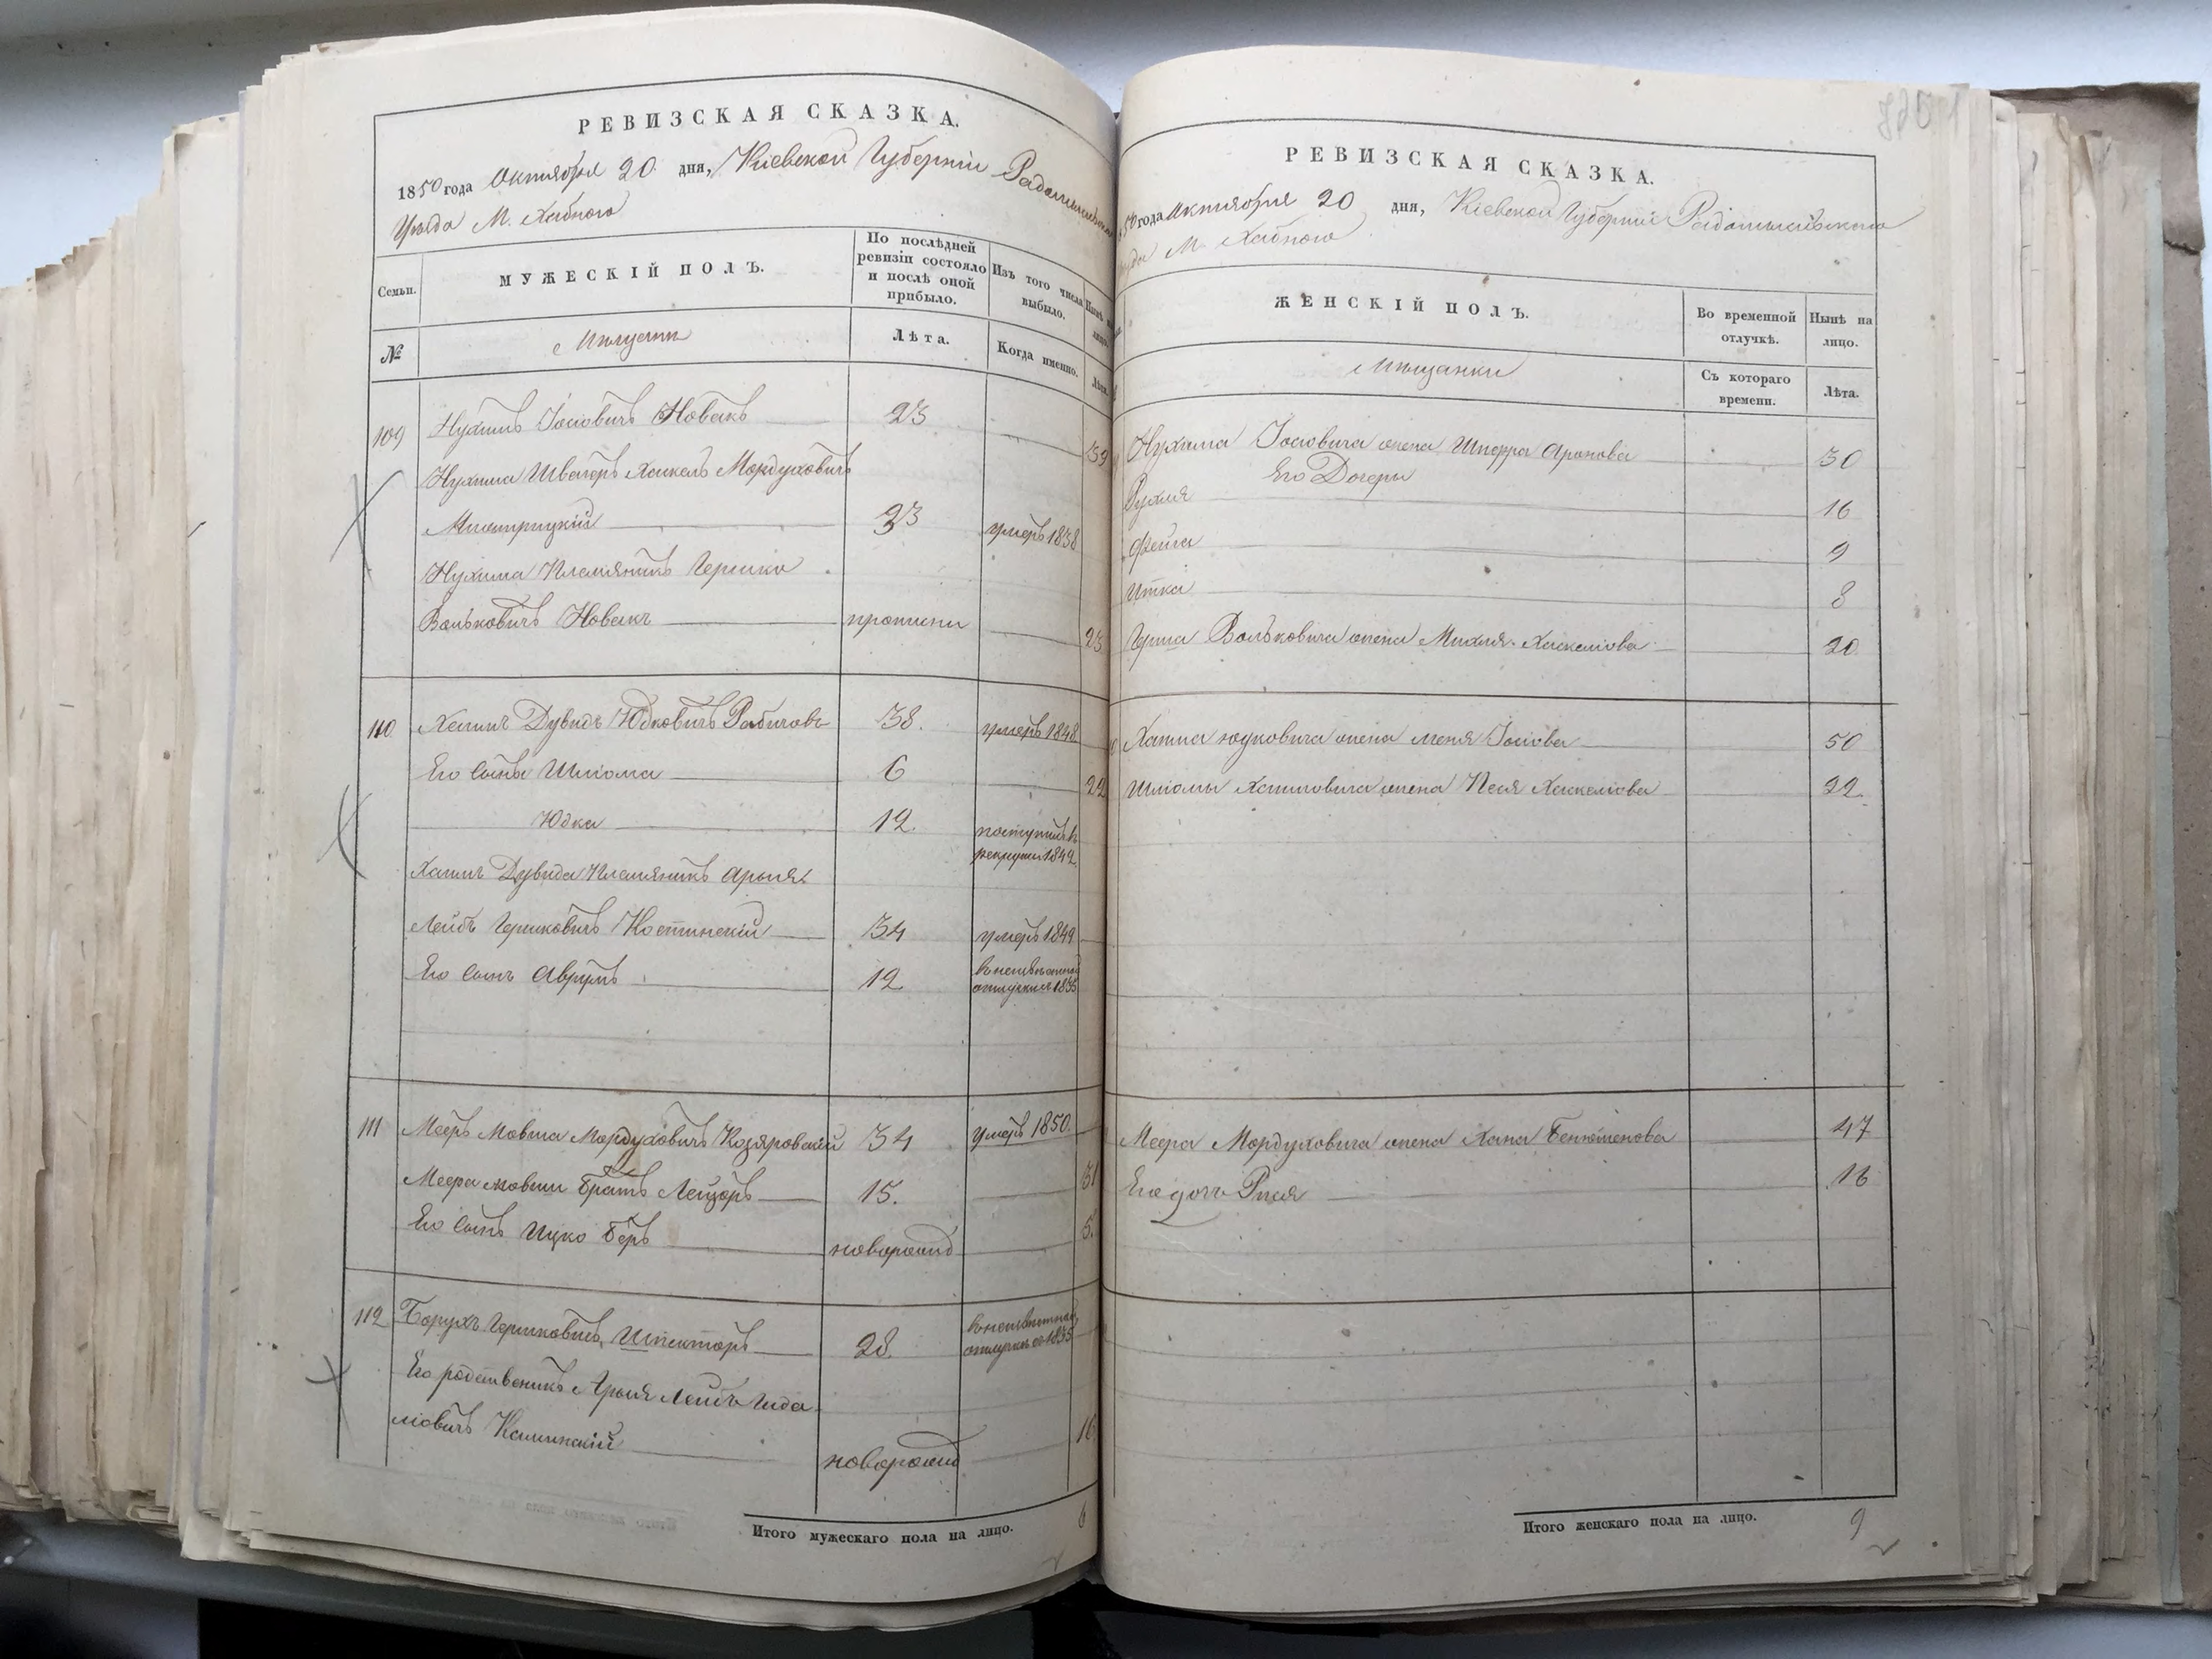 РЕВИЗСКАЯ СКАЗКА.
1850 года Октября 20 дня, Кіевской Губерніи Радомысльскаго
Уѣзда М. Хабного
Семьи.
МУЖЕСКІЙ ПОЛЪ.
По послѣдней ревизіи состояло и послѣ оной прибыло.
Изъ того числа выбыло.
Нынѣ на лицо.
№
Мѣщане
Лѣта.
Когда именно.
Лѣта.
109 Нухимъ Іосіовичъ Новакъ 23 39
Нухима Швагеръ Хаскель Мордуховичъ
23 умеръ 1838
Нухима Племянникъ Гершко
Вольковичъ Новакъ пропис. 23
110 Хаимъ Дувидъ Юдковичъ Рабиновъ 38. умеръ 1848
Его Сынъ Шлиома 6 22
Юдка 12. поступилъ въ рекруты 1842
Хаимъ Дувида Племяникъ Арыя
Лейбъ Гершковичъ 34 умеръ 1849
Его Сынъ Аврумъ 12 въ неизвѣстной отлучкѣ съ 1835
111 Мееръ Мовша Мордуховичъ Козяровскій 34 умеръ 1850.
Меера Мовши братъ Лейзоръ 15. 31
Его Сынъ Ицко Беръ новорожд 5.
112 Борухъ Гершковичъ Шпекторъ 28. въ неизвѣстной отлучкѣ съ 1835
Его родственикъ Арыя Лейбъ Гида
ліовичъ Каминскій новорожд 16
Итого мужескаго пола на лицо. 6
РЕВИЗСКАЯ СКАЗКА.
50 года Октября 20 дня, Кіевской Губерніи Радомысльскаго
уѣзда М. Хабного
ЖЕНСКІЙ ПОЛЪ.
Во временной отлучкѣ.
Нынѣ на лицо.
Мѣщанки
Съ котораго времени.
Лѣта.
Нухима Іосіовича жена Шпорра Аронова 30
Его Дочери
Рухля 16
Фейга 9
Итка 8
Герша Вольковича жена Михля Хаскеліова 20
Хаима юдковича жена Меня Іосіова 50
Шліомы Хаимовича жена Песя Хаскеліова 22.
Меера Мордуховича жена Хана Бенюменова 47
Его дочь Рися 16
Итого женскаго пола на лицо. 9